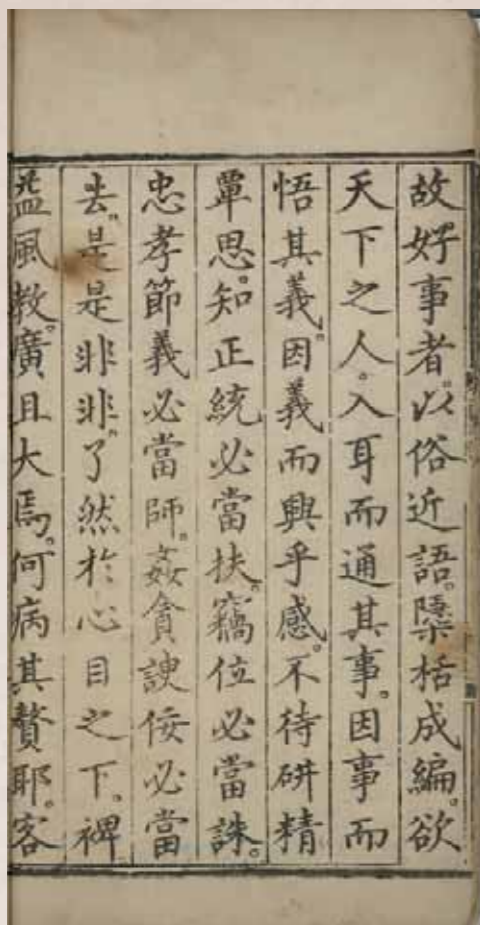 故好事者。以俗近語。檃栝成編。欲
天下之人。入耳而通其事。因事而
悟其義。因義而興乎感。不待研精
覃思。知正統必當扶。竊位必當誅。
忠孝節義必當師。姦貪諛佞必當
去。是是非非。了然於心目之下。裨
益風教。廣且大焉。何病其贅耶。客